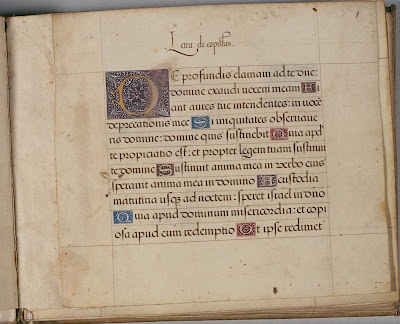 Letra de copistas.
DE profundis clamavi ad te dñe:
domine exaudi vocem meam Fi
ant aures tue intendentes: in vocē
deprecationis mee Si iniquitates observave
ris domine: domine quis sustinebit Quia apd
te propiciatio est: et propter legem tuam sustinui
te domine Sustinuit anima mea in verbo eius
speravit anima mea in domino A custodia
matutina usq; ad noctem: speret israel in dño
Quia apud dominum misericordia: et copi
osa apud eum redemptio Et ipse redimet